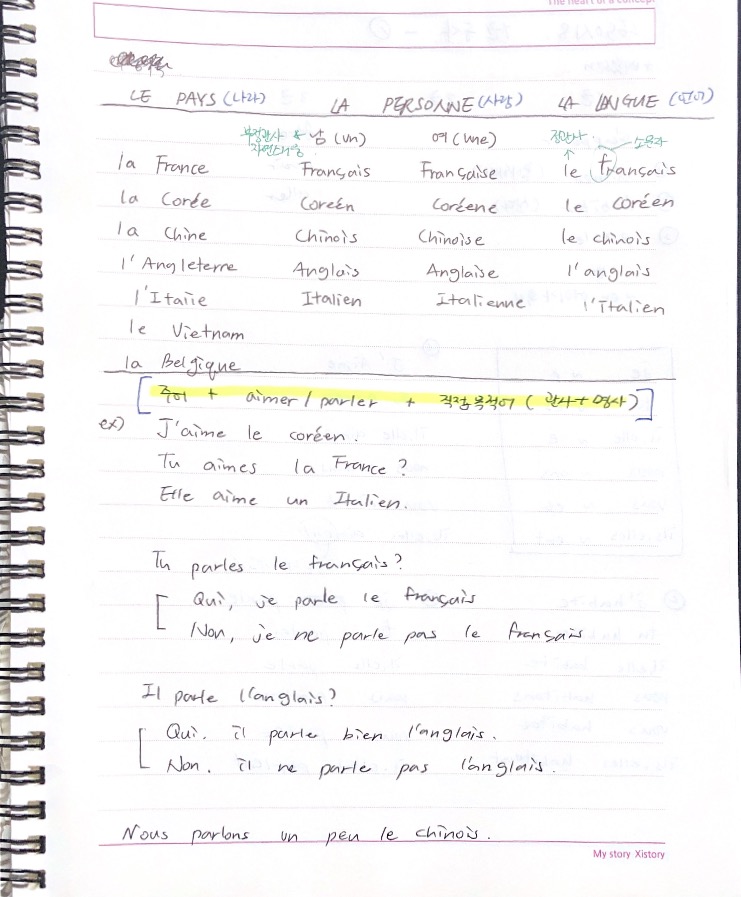 The heart of a concept
LE PAYS (나라) LA PERSONNE (사람) LA LANGUE (언어)
부정관사 & 남 (un) 여 (une) 정관사 소문자
자연스러움
la France Français Française le français
la Corée Coreén Coréene le coréen
la Chine Chinois Chinoise le chinois
l'Angleterre Anglais Anglaise l'anglais
l'Italie Italien Italienne l'italien
le Vietnam
la Belgique
[ 주어 + aimer / parler + 직접목적어 ( 관사 + 명사 ) ]
ex) J'aime le coréen.
Tu aimes la France?
Elle aime un Italien.
Tu parles le français?
Qui, je parle le français
Non, je ne parle pas le français
Il parle l'anglais?
Qui. il parle bien l'anglais.
Non. il ne parle pas l'anglais.
Nous parlons un peu le chinois.
My story Xistory